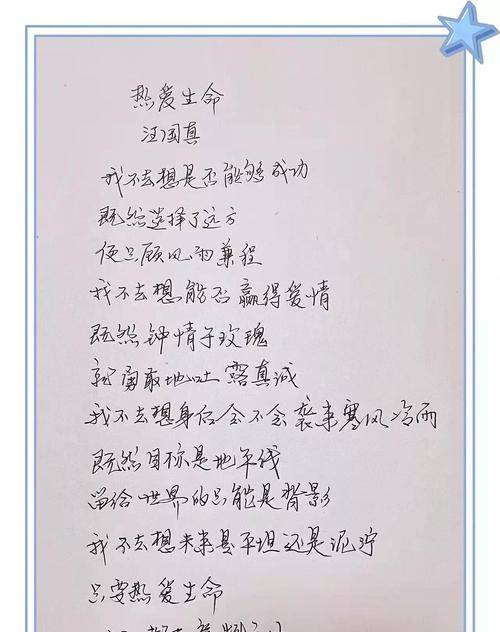 热爱生命
汪国真
我不去想是否能够成功
既然选择了远方
便只顾风雨兼程
我不去想能否赢得爱情
既然钟情于玫瑰
就勇敢地吐露真诚
我不去想身后会不会袭来寒风冷雨
既然目标是地平线
留给世界的只能是背影
我不去想未来是平坦还是泥泞
只要热爱生命